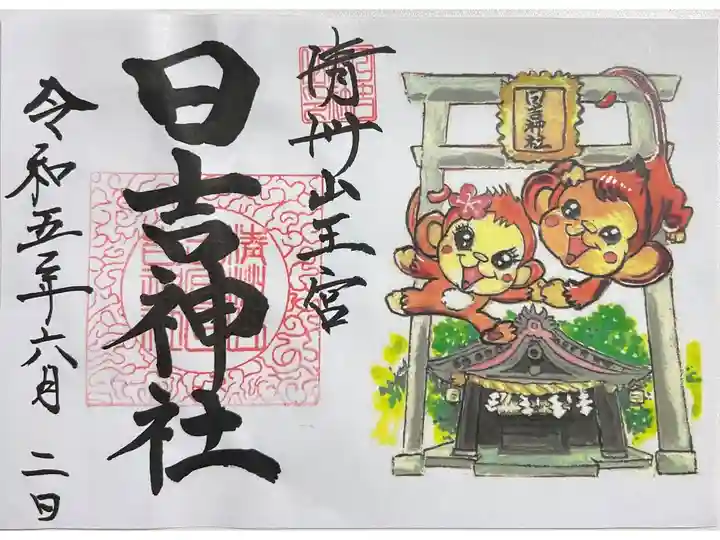 清州山王宮
日吉神社
令和五年六月二日
日吉神社